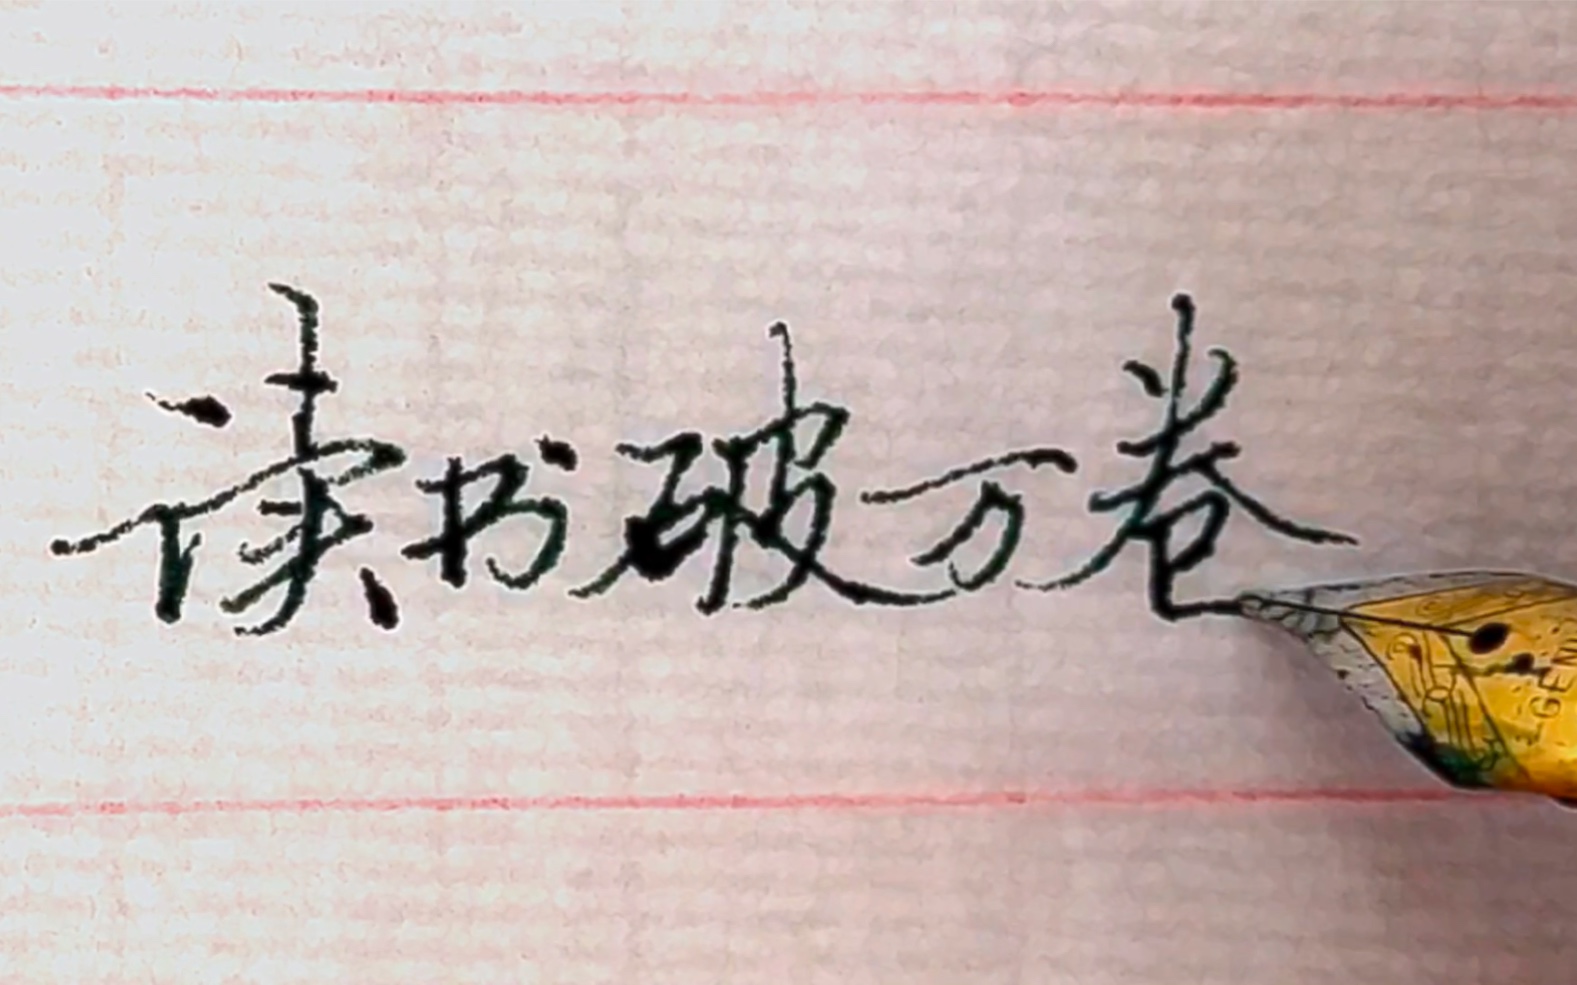 读书破万卷
GEN